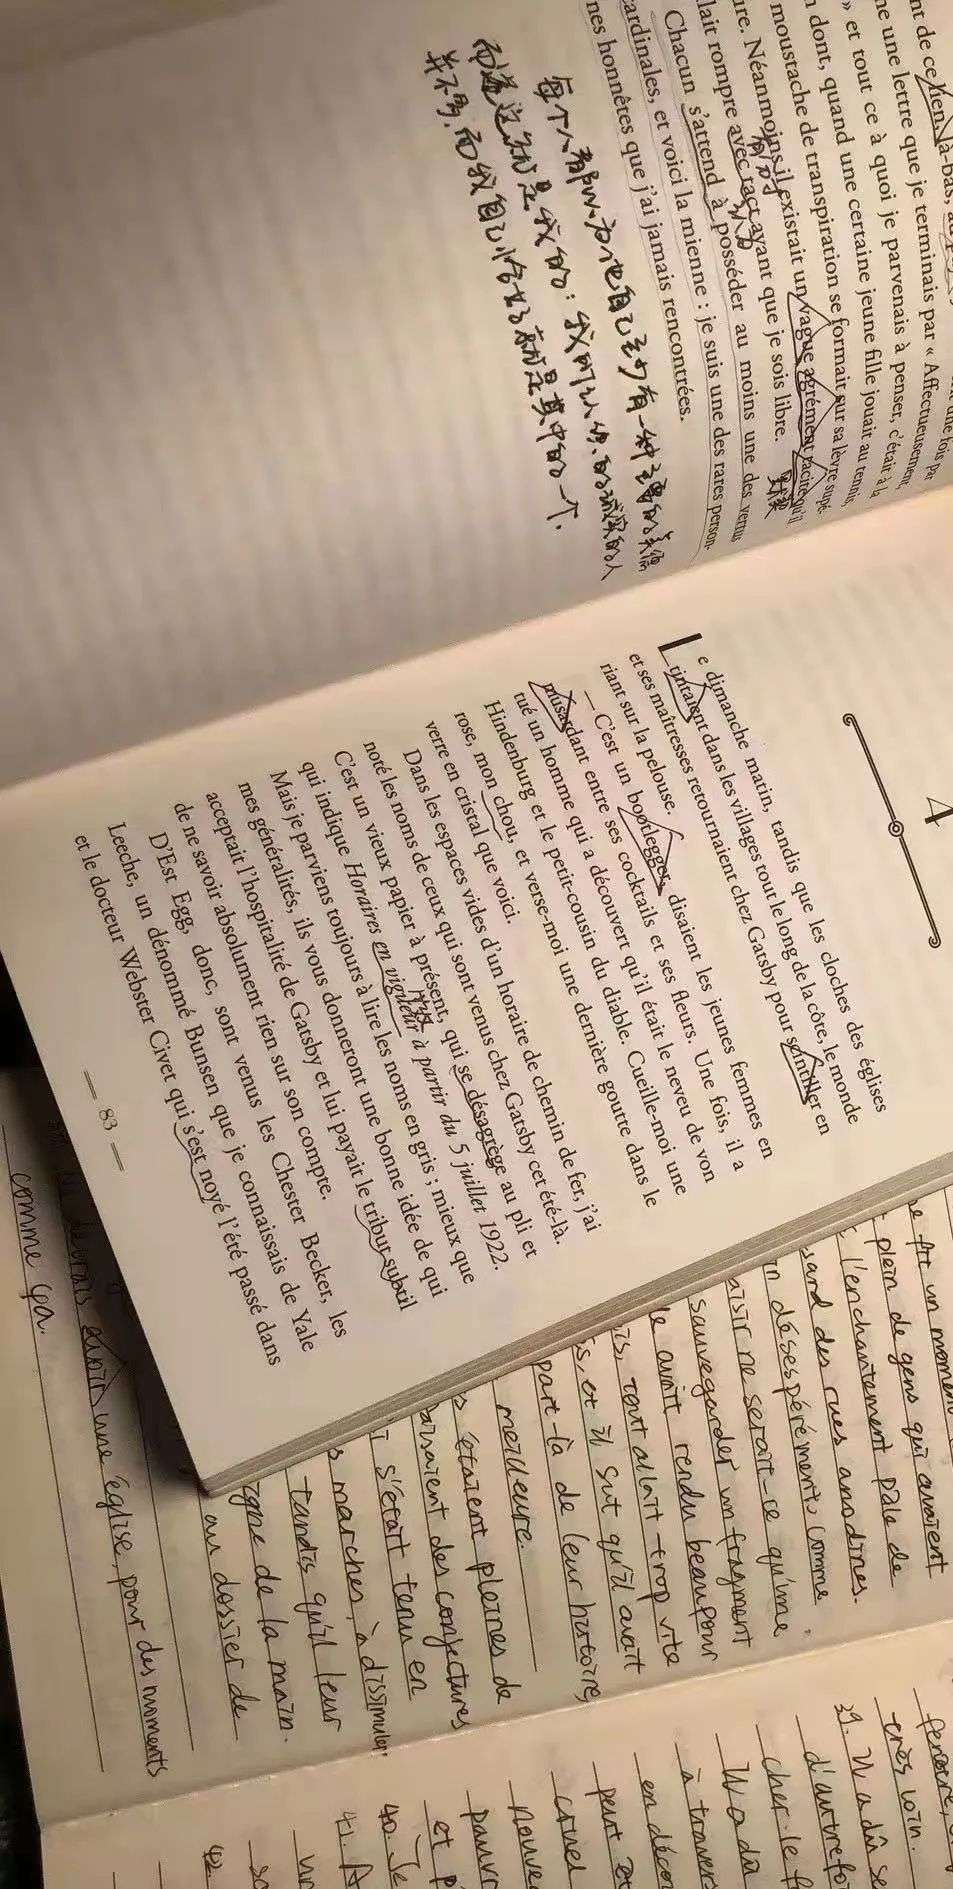 nt de ce lien, là-bas,
ne une lettre que je terminais par « Affectueusement,
» et tout ce à quoi je parvenais à penser, c'était à la
n dont, quand une certaine jeune fille jouait au tennis,
moustache de transpiration se formait sur sa lèvre supé-
ure. Néanmoins il existait un vague agrément tacite qu'il
lait rompre avec tact ayant que je sois libre.
Chacun s'attend à posséder au moins une des vertus
cardinales, et voici la mienne : je suis une des rares person-
nes honnêtes que j'ai jamais rencontrées.
每个人都以为他自己至少有一种主要的美德
而这就是我的：我所认识的诚实的人
并不多，而我自己恰好就是其中的一个.
4
Le dimanche matin, tandis que les cloches des églises
tintaient dans les villages tout le long de la côte, le monde
et ses maîtresses retournaient chez Gatsby pour scintiller en
riant sur la pelouse.
— C'est un bootlegger, disaient les jeunes femmes en
musardant entre ses cocktails et ses fleurs. Une fois, il a
tué un homme qui a découvert qu'il était le neveu de von
Hindenburg et le petit-cousin du diable. Cueille-moi une
rose, mon chou, et verse-moi une dernière goutte dans le
verre en cristal que voici.
Dans les espaces vides d'un horaire de chemin de fer, j'ai
noté les noms de ceux qui sont venus chez Gatsby cet été-là.
C'est un vieux papier à présent, qui se désagrège au pli et
qui indique Horaires en vigueur à partir du 5 juillet 1922.
Mais je parviens toujours à lire les noms en gris ; mieux que
mes généralités, ils vous donneront une bonne idée de qui
acceptait l'hospitalité de Gatsby et lui payait le tribut subtil
de ne savoir absolument rien sur son compte.
D'Est Egg, donc, sont venus les Chester Becker, les
Leeche, un dénommé Bunsen que je connaissais de Yale
et le docteur Webster Civet qui s'est noyé l'été passé dans
— 83 —
un moment
plein de gens qui avaient
l'enchantement pâle de
sand des rues anodines.
n désespérément, comme
aisir ne serait-ce qu'une
sauvegarder un fragment
le avait rendu beau pour
is, tout allait trop vite
s, et il sut qu'il avait
part-là de leur histoire,
meilleure.
s étaient pleines de
aisaient des conjectures
i s'était tenu en
s marches, à dissimuler
tandis qu'il leur
igne de la main.
au dossier de
une église, pour des moments
comme ça.
très loin.
39. Il a dû se
d'autrefoi
cher le
Il a dû
à travers
en décon
peut êt
cruel
nouve
pauvr
et p
40. Je
41. A
42.